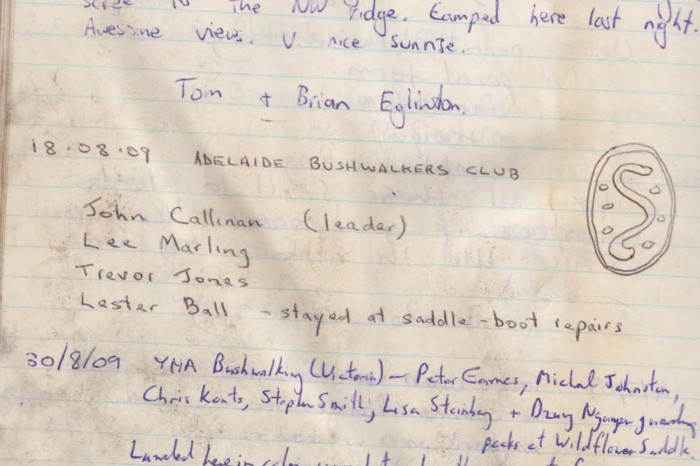 to the NW ridge. Camped here last night.
Awesome views. V nice sunrise.
Tom + Brian Eglinton.
18.08.09 ADELAIDE BUSHWALKERS CLUB
John Callinan (leader)
Lee Marling
Trevor Jones
Lester Ball - stayed at saddle - boot repairs
30/8/09 YHA Bushwalking (Victoria) - Peter Eames, Michal Johnston,
Chris Konts, Stephen Smith, Lisa Steinberg + Dzung Nguyen guarding
packs at Wildflower Saddle
Lunched here in